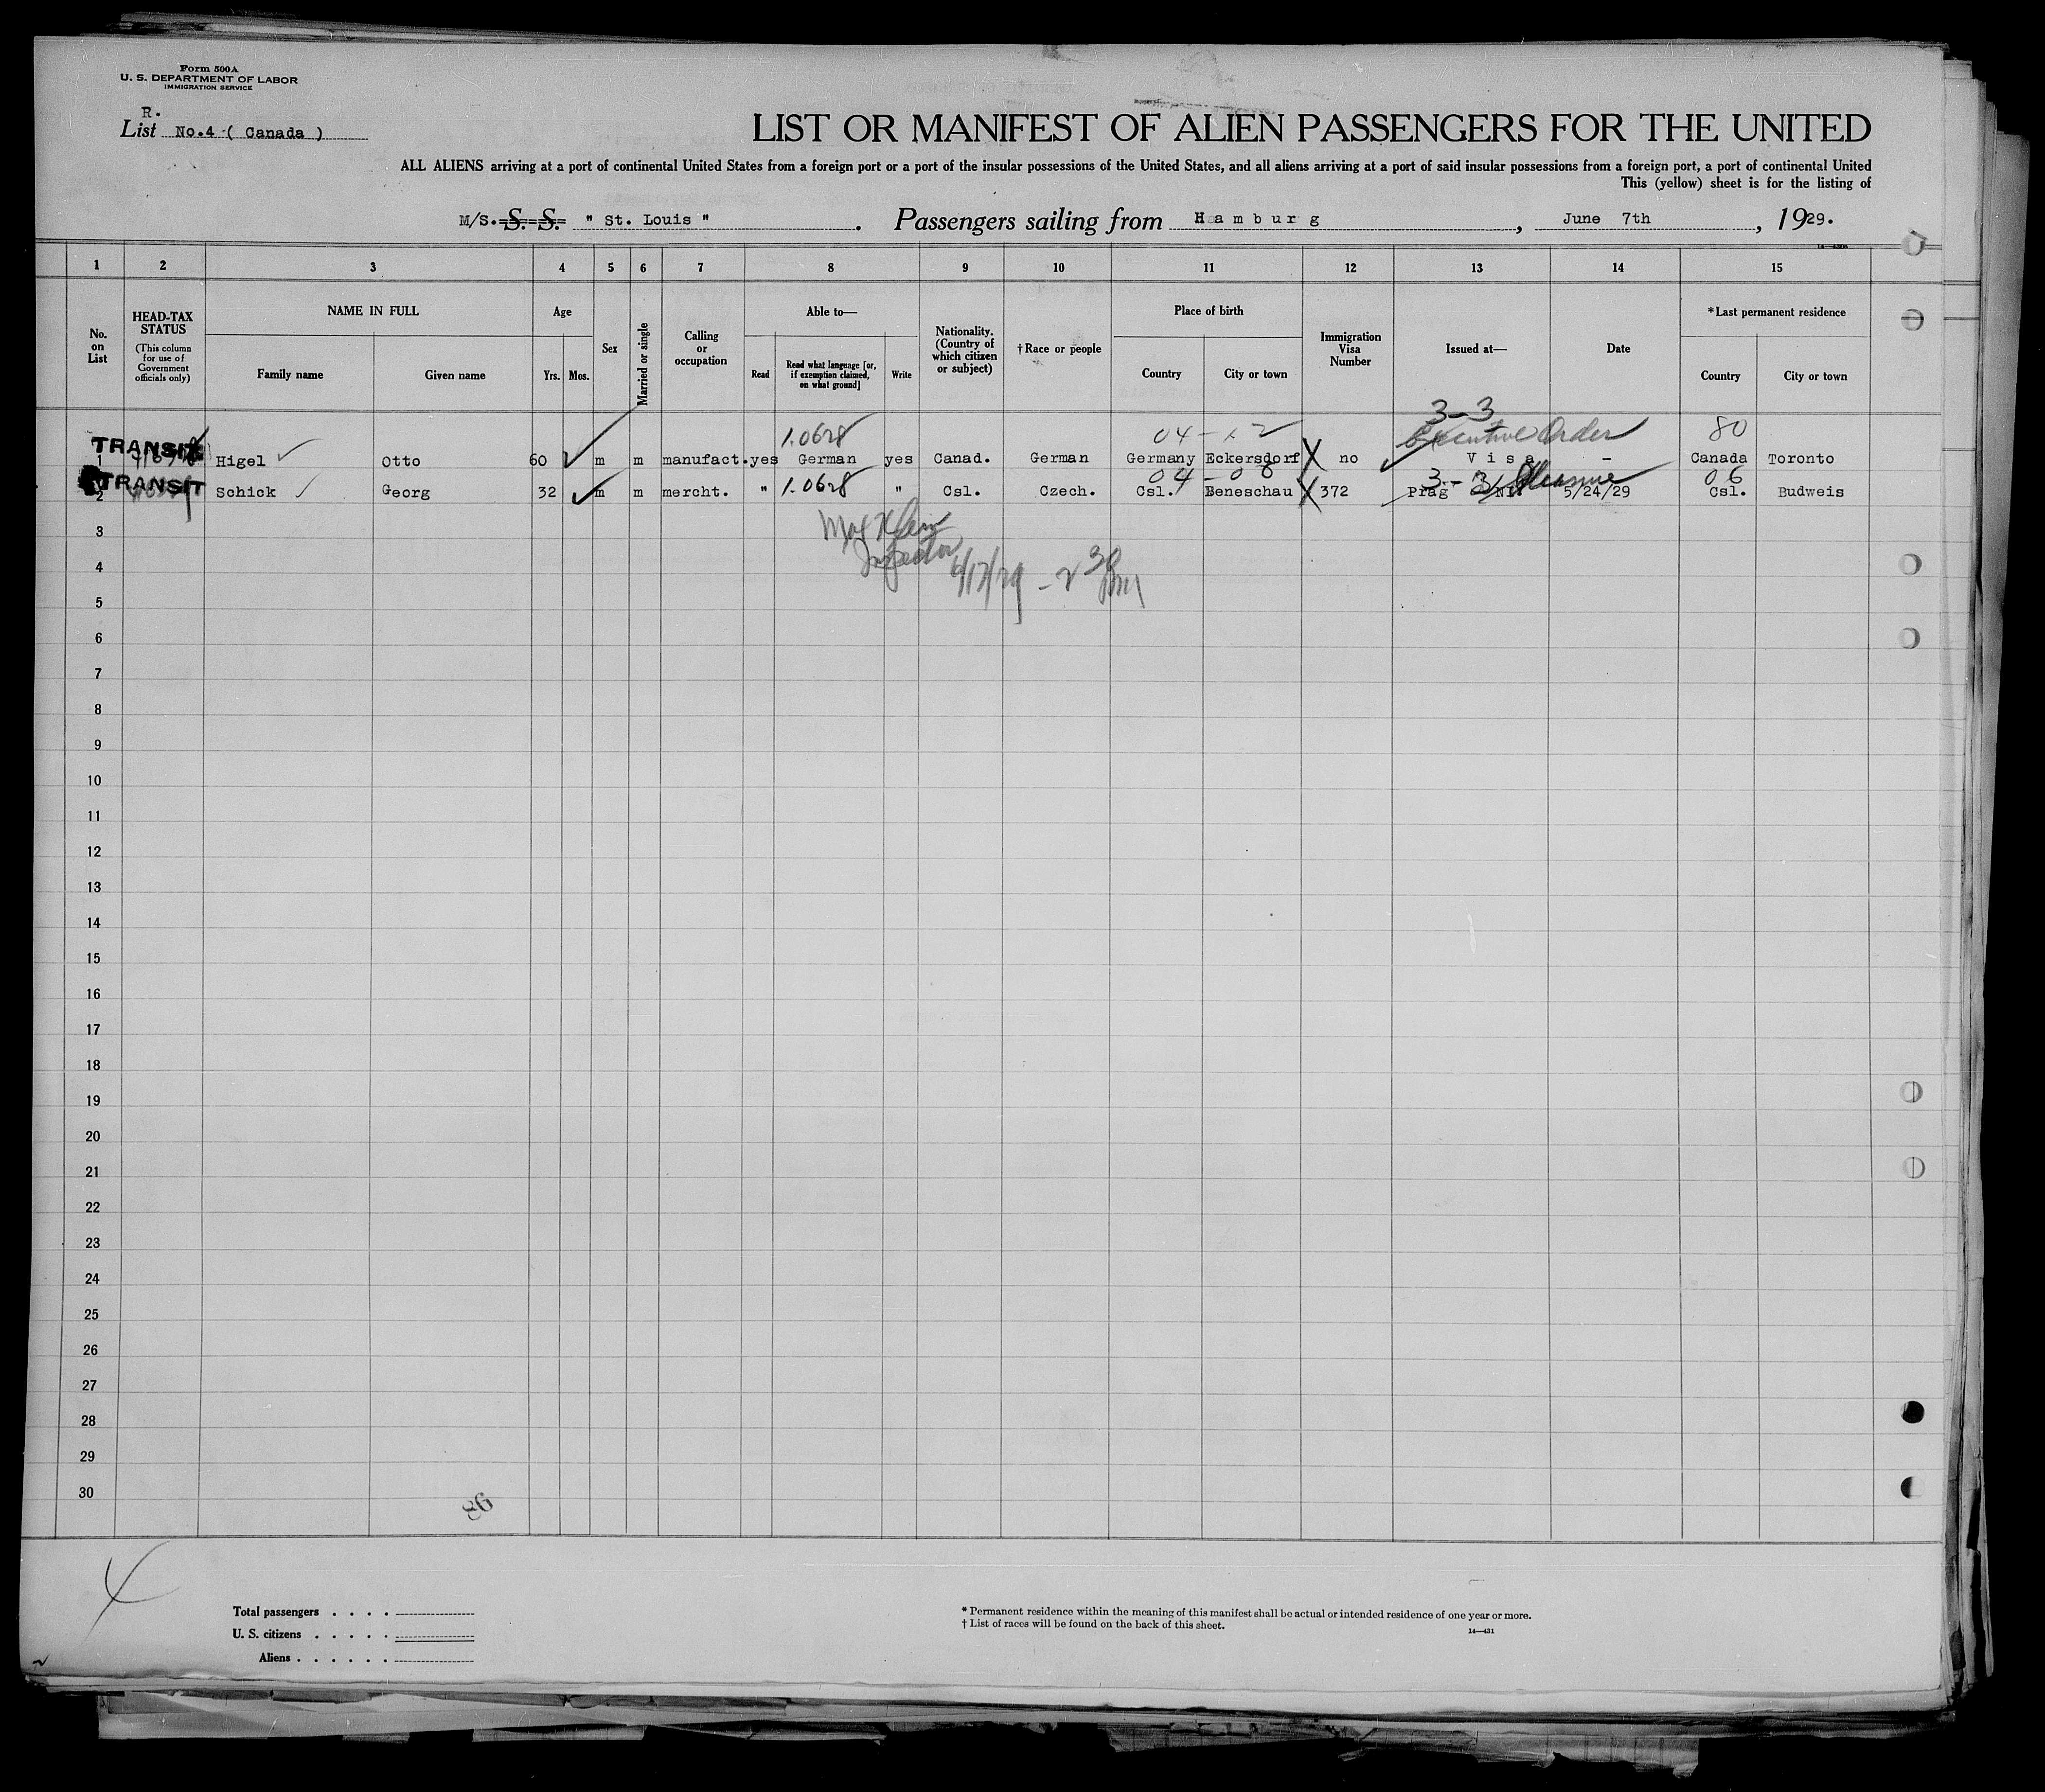 Form 500A
U. S. DEPARTMENT OF LABOR
IMMIGRATION SERVICE
R.
List No.4 ( Canada )
LIST OR MANIFEST OF ALIEN PASSENGERS FOR THE UNITED
ALL ALIENS arriving at a port of continental United States from a foreign port or a port of the insular possessions of the United States, and all aliens arriving at a port of said insular possessions from a foreign port, a port of continental United
This (yellow) sheet is for the listing of
M/S. S. S. " St. Louis ". Passengers sailing from Hamburg, June 7th, 1929.
1 2 3 4 5 6 7 8 9 10 11 12 13 14 15
No. on List
HEAD-TAX STATUS
(This column for use of Government officials only)
NAME IN FULL
Family name Given name
Age
Yrs. Mos.
Sex
Married or single
Calling or occupation
Able to—
Read Read what language [or, if exemption claimed, on what ground] Write
Nationality. (Country of which citizen or subject)
† Race or people
Place of birth
Country City or town
Immigration Visa Number
Issued at—
Date
* Last permanent residence
Country City or town
3-3
1.0628 Executive Order 80
TRANSIT
1 Higel Otto 60 m m manufact. yes German yes Canad. German Germany Eckersdorf no Visa - Canada Toronto
04-08 3-3 06
TRANSIT
2 Schick Georg 32 m m mercht. " 1.0628 " Csl. Czech. Csl. Beneschau 372 Prag 5/24/29 Csl. Budweis
Max Klein
Inspector
6/17/29 - 2 30 PM
3
4
5
6
7
8
9
10
11
12
13
14
15
16
17
18
19
20
21
22
23
24
25
26
27
28
29
30
86
4
Total passengers . . . .
U. S. citizens . . . . .
Aliens . . . . . .
* Permanent residence within the meaning of this manifest shall be actual or intended residence of one year or more.
† List of races will be found on the back of this sheet.
14—431